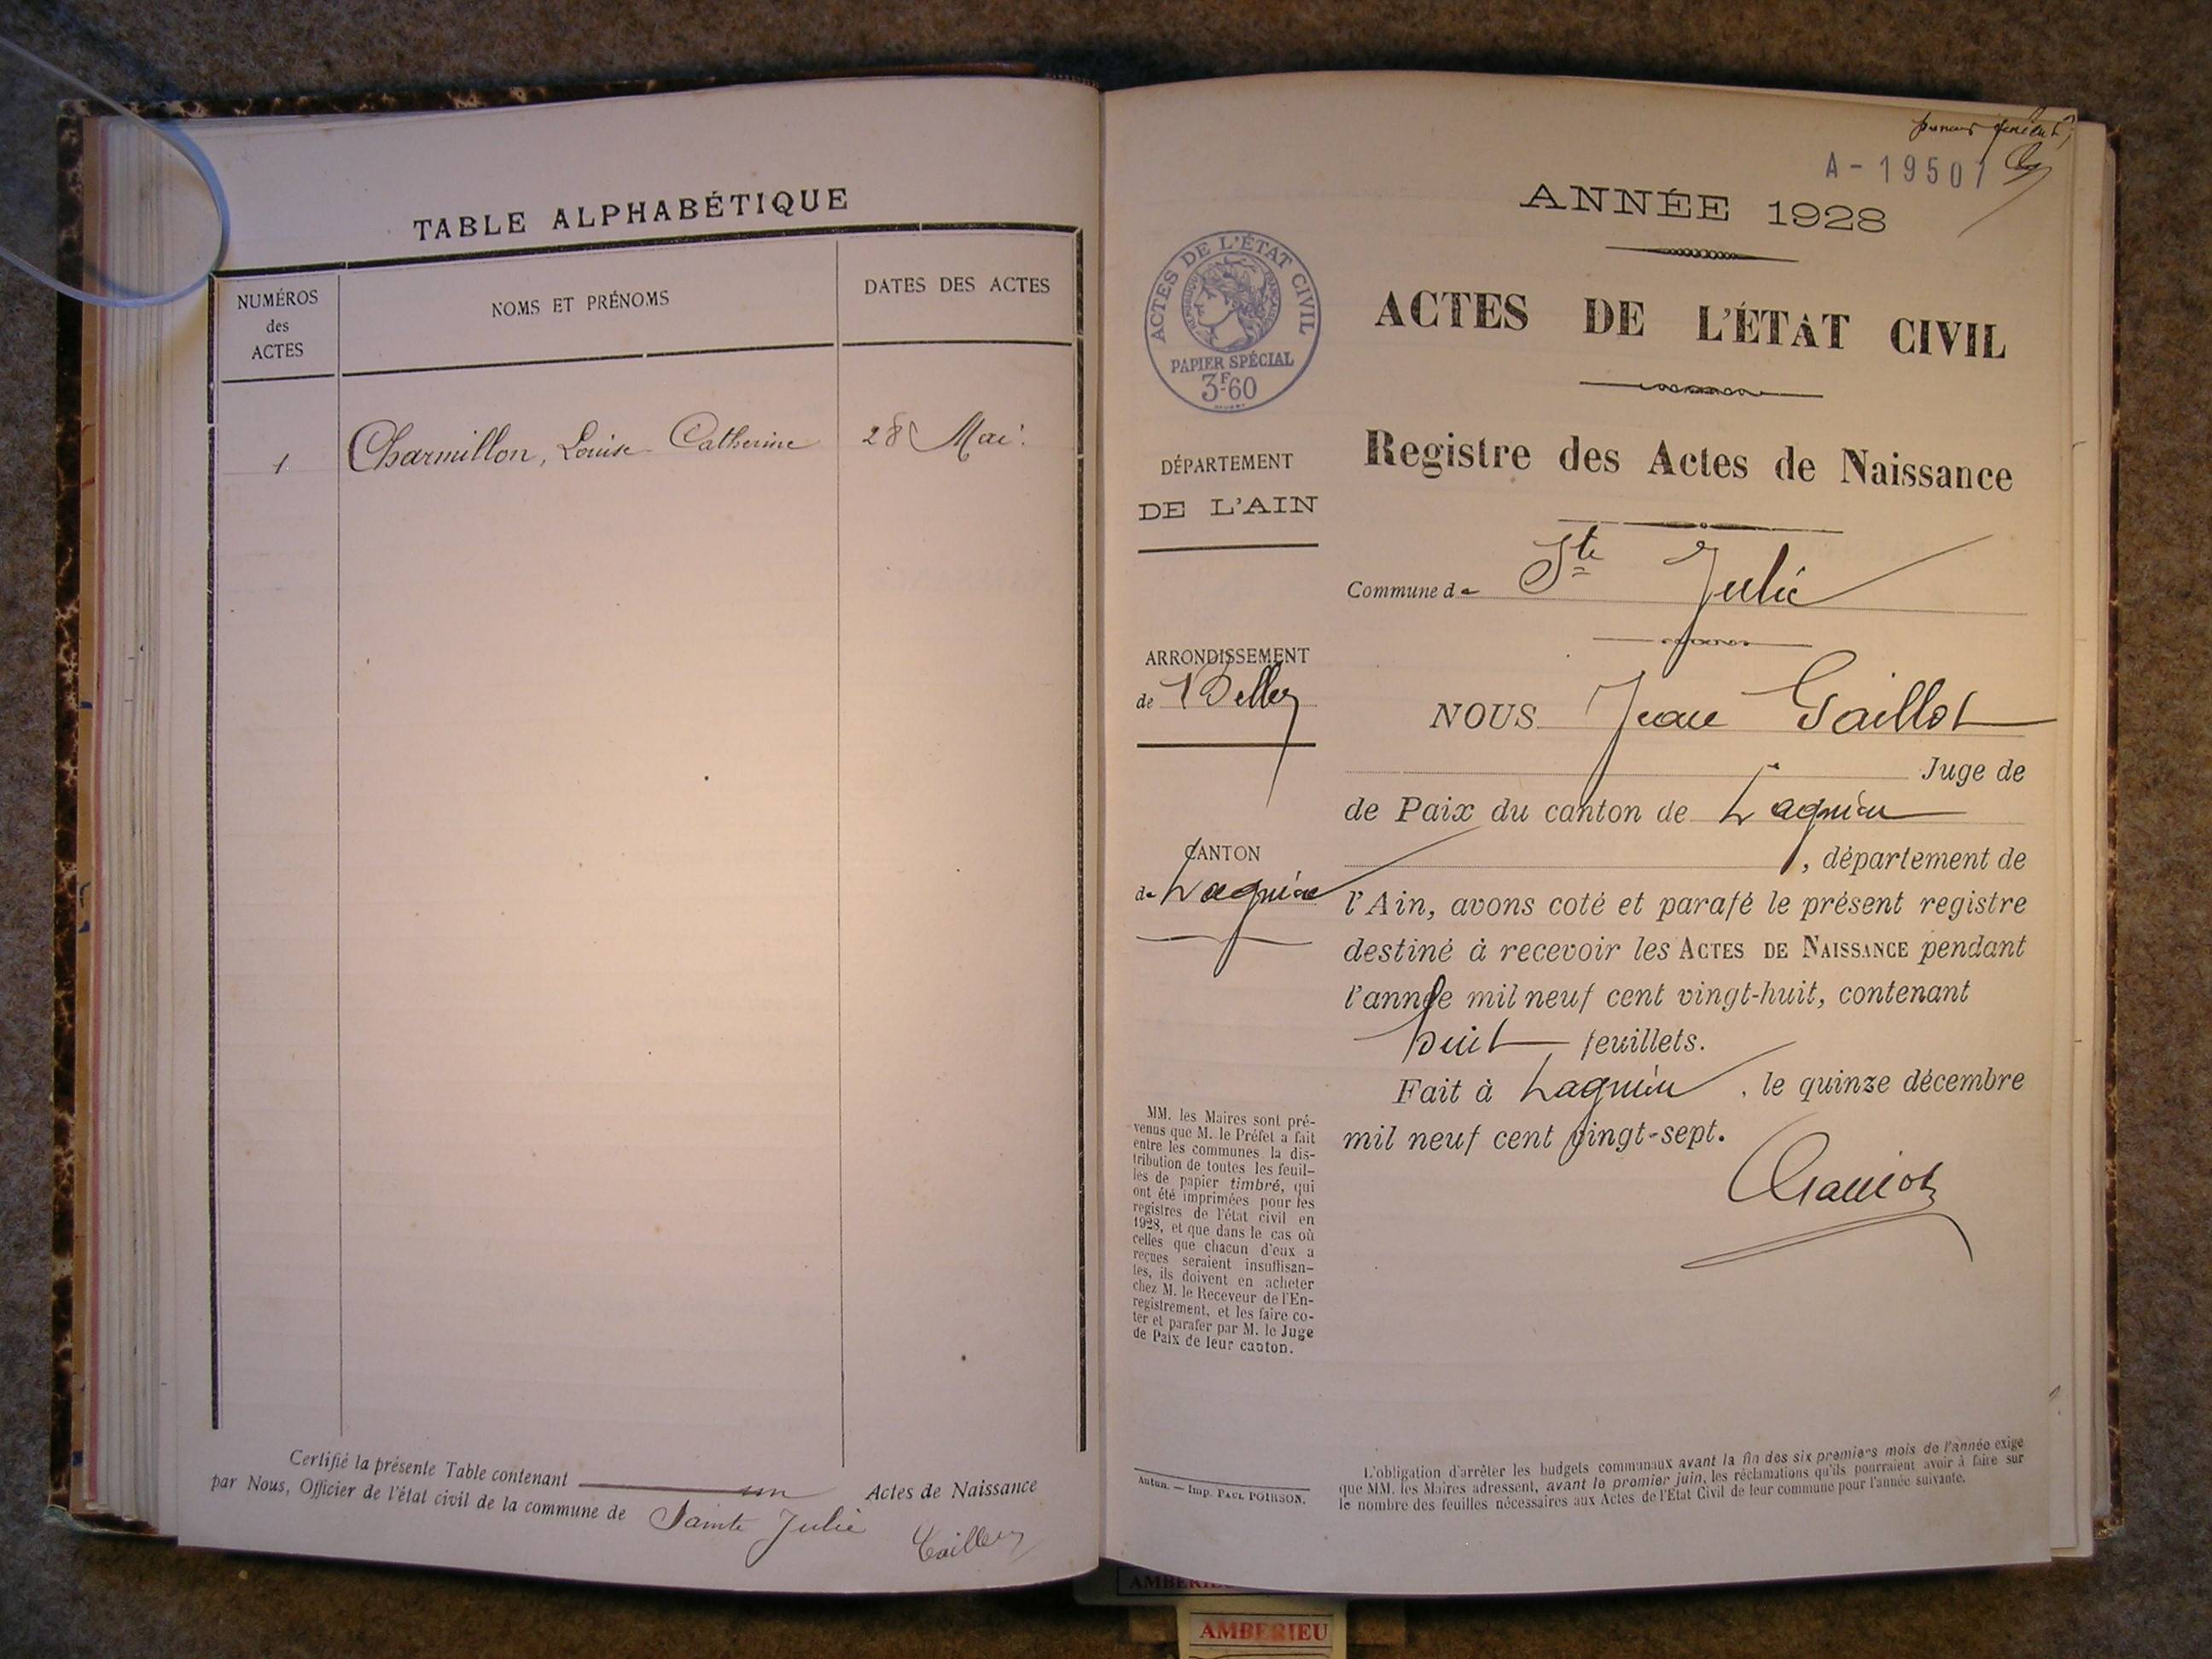 TABLE ALPHABÉTIQUE
NUMÉROS
des
ACTES
NOMS ET PRÉNOMS
DATES DES ACTES
1
Charmillon, Louise Catherine
28 Mai
Certifié la présente Table contenant un Actes de Naissance
par Nous, Officier de l'état civil de la commune de Sainte Julie
A - 19507
ANNÉE 1928
ACTES DE L'ÉTAT CIVIL
RÉPUBLIQUE FRANÇAISE
PAPIER SPÉCIAL
3F.60
ACTES DE L'ÉTAT CIVIL
Registre des Actes de Naissance
DÉPARTEMENT
DE L'AIN
Commune de Ste Julie
ARRONDISSEMENT
de Belley
CANTON
de Lagnieu
NOUS Jean Gaillot
Juge de
de Paix du canton de Lagnieu
, département de
l'Ain, avons coté et parafé le présent registre
destiné à recevoir les ACTES DE NAISSANCE pendant
l'année mil neuf cent vingt-huit, contenant
huit feuillets.
Fait à Lagnieu, le quinze décembre
mil neuf cent vingt-sept.
MM. les Maires sont pré-
venus que M. le Préfet a fait
entre les communes la dis-
tribution de toutes les feuil-
les de papier timbré, qui
ont été imprimées pour les
registres de l'état civil en
1928, et que dans le cas où
celles que chacun d'eux a
reçues seraient insuffisan-
tes, ils doivent en acheter
chez M. le Receveur de l'En-
registrement, et les faire co-
ter et parafer par M. le Juge
de Paix de leur canton.
Autun. — Imp. PAUL POIRSON.
L'obligation d'arrêter les budgets communaux avant la fin des six premiers mois de l'année exige
que MM. les Maires adressent, avant le premier juin, les réclamations qu'ils pourraient avoir à faire sur
le nombre des feuilles nécessaires aux Actes de l'Etat Civil de leur commune pour l'année suivante.
AMBERIEU